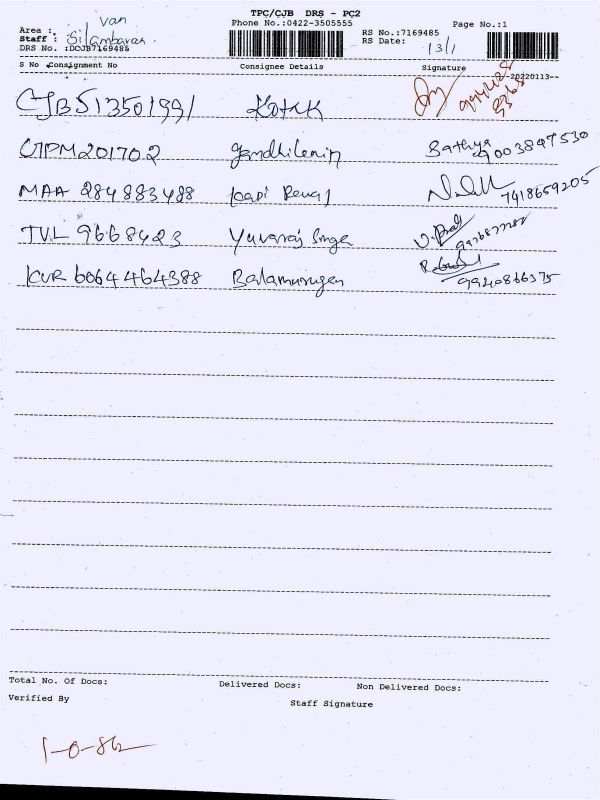 TPC/CJB DRS - PC2
Phone No.:0422-3505555
Page No.:1
Area : Van
Staff : Silambaran.
DRS No. :DCJB7169485
RS No.:7169485
RS Date: 13/1
20220113--
S No Consignment No Consignee Details Signature
CJB513501991 Kotak
CTPM201702 Gandhilenin Sathya 9003897530
MAA 284883488 7418659205
TVL 9668423 Yuvaraj
KVR 6064464388 Balamurugan 9940866375
Total No. Of Docs: Delivered Docs: Non Delivered Docs:
Verified By Staff Signature